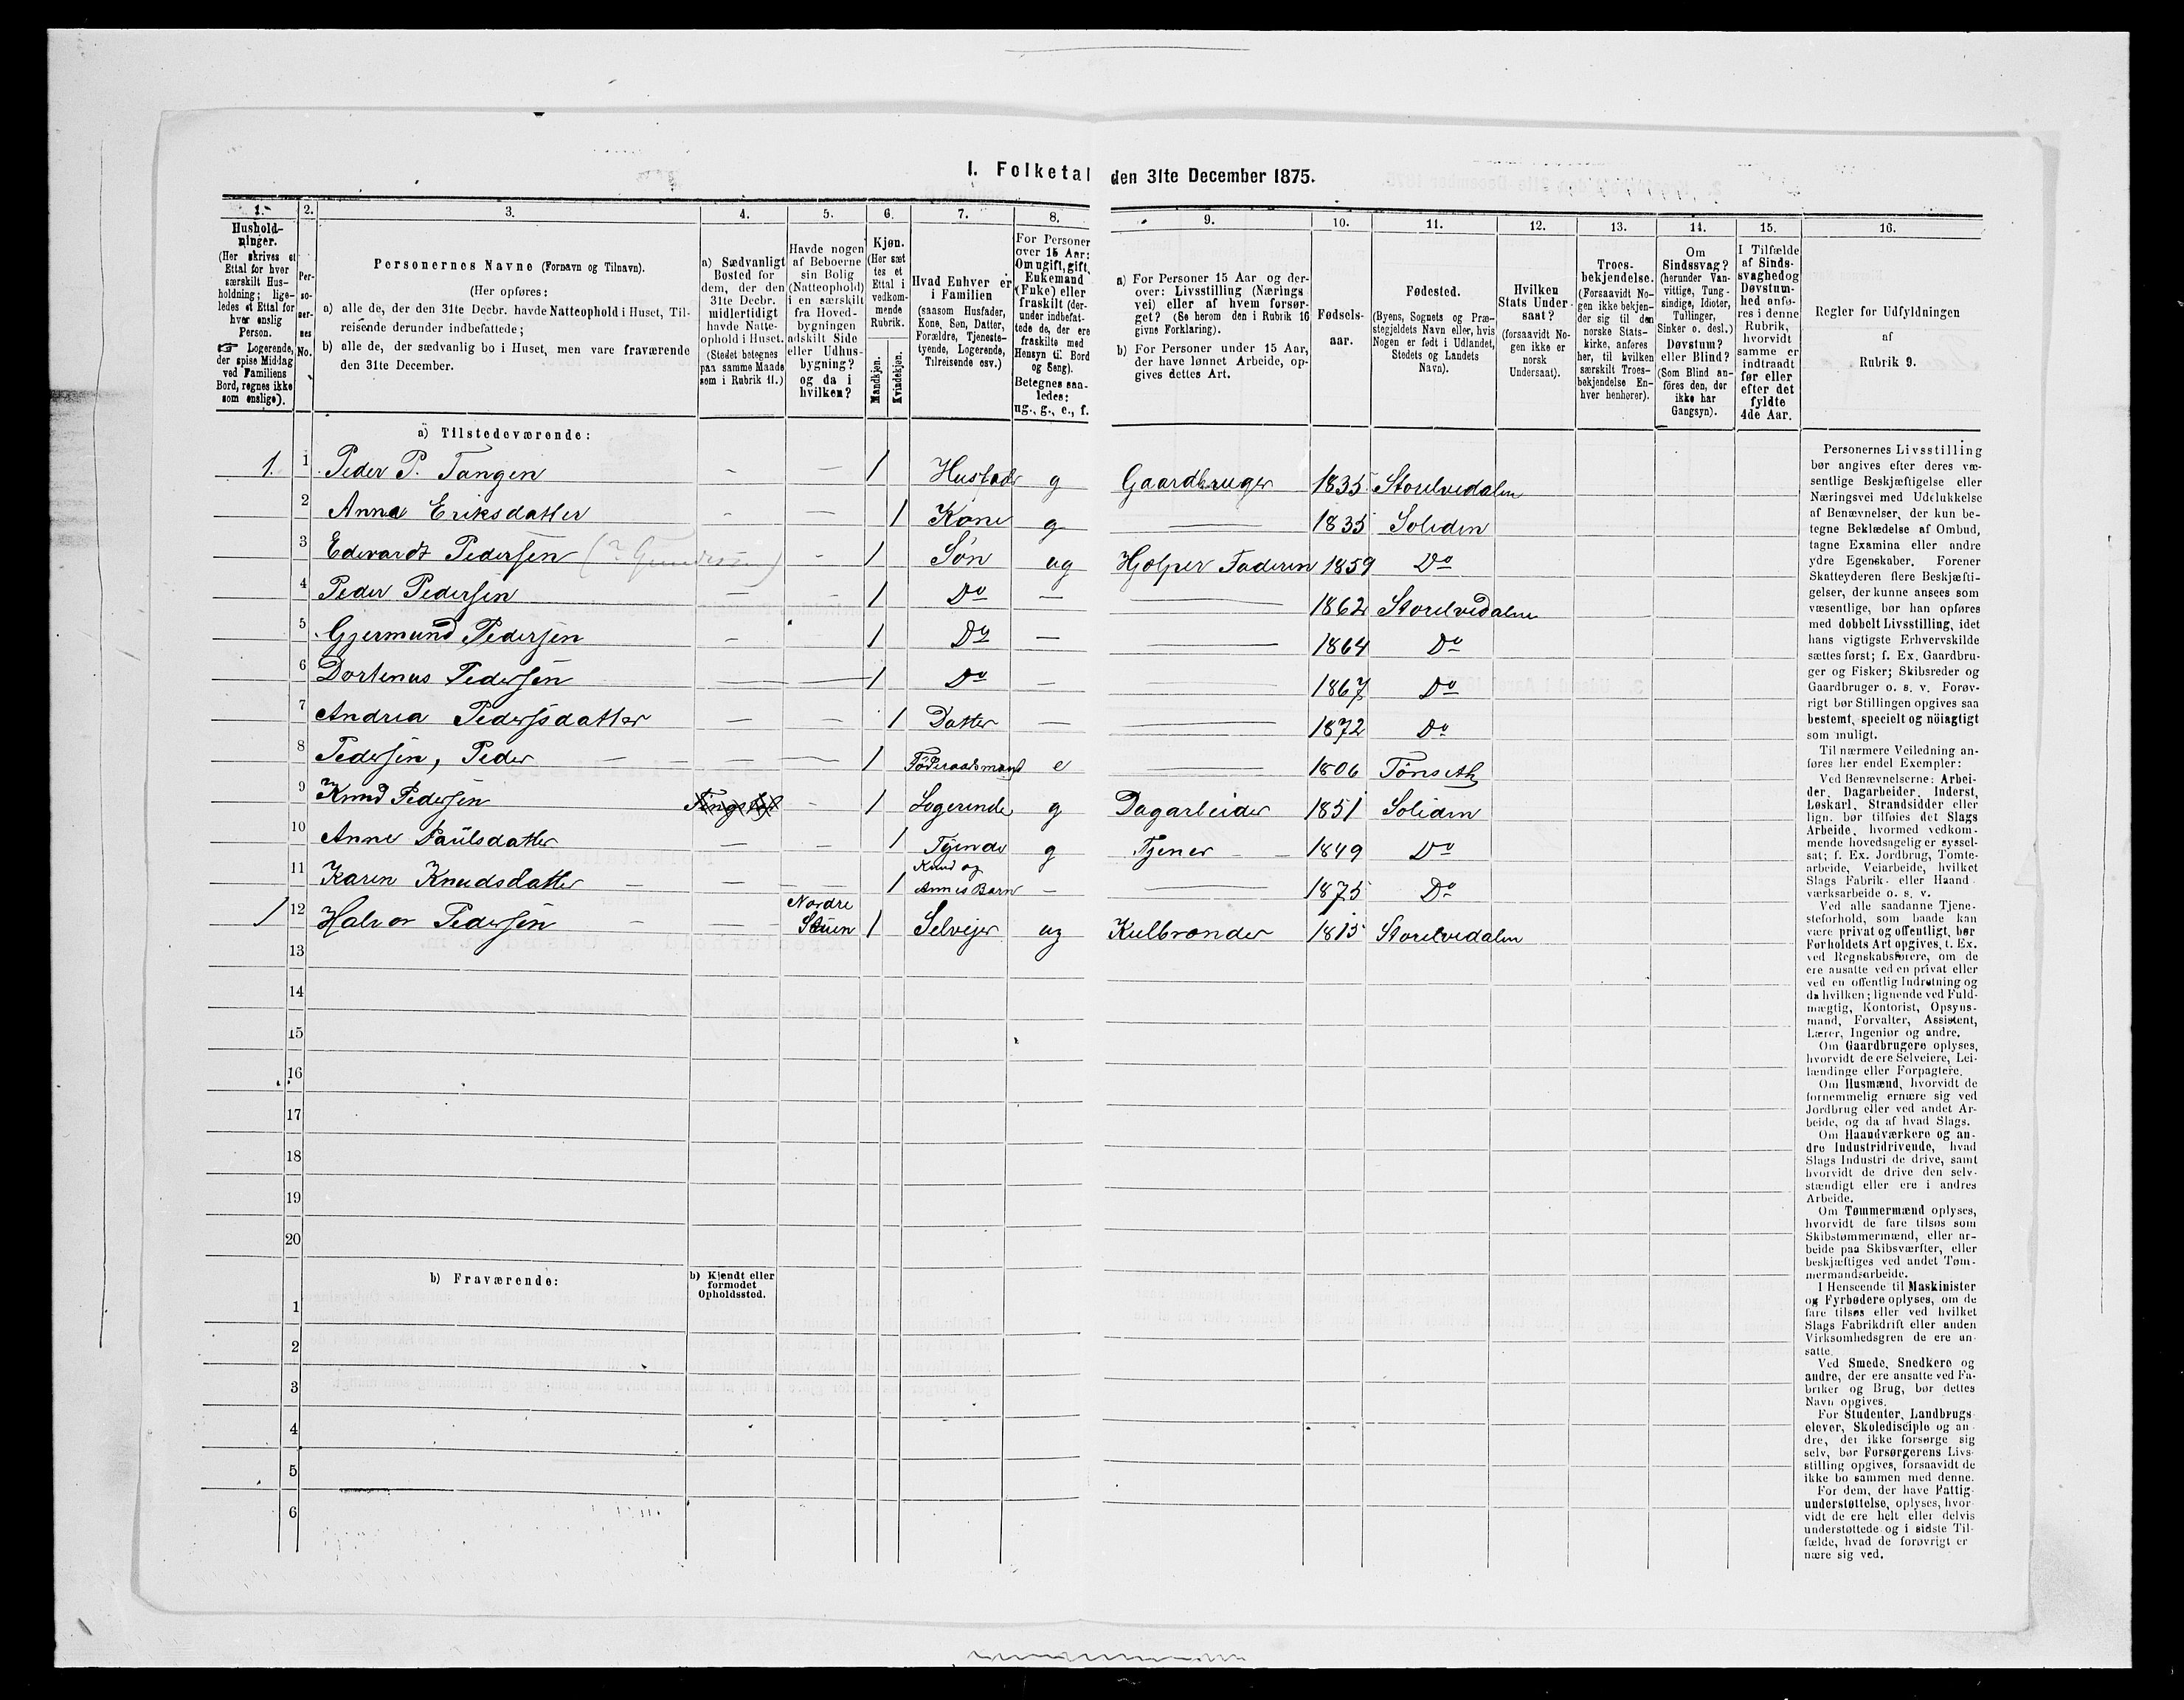 I. Folketal den 31te December 1875.
1. 2. 3. 4. 5. 6. 7. 8. 9. 10. 11. 12. 13. 14. 15. 16.
Hushold-
ninger.
(Her skrives et
Ettal for hver
særskilt Hus-
holdning; lige-
ledes et Ettal for
hver enslig
Person.
☞ Logerende,
der spise Middag
ved Familiens
Bord, regnes ikke
som enslige).
Per-
so-
ner-
nes
No.
Personernes Navne (Fornavn og Tilnavn).
(Her opføres:
a) alle de, der den 31te Decbr. havde Natteophold i Huset, Til-
reisende derunder indbefattede;
b) alle de, der sædvanlig bo i Huset, men vare fraværende
den 31te December.
a) Sædvanligt
Bosted for
dem, der den
31te Decbr.
midlertidigt
havde Natte-
ophold i Huset.
(Stedet betegnes
paa samme Maade
som i Rubrik 11.)
Havde nogen
af Beboerne
sin Bolig
(Natteophold)
i en særskilt
fra Hoved-
bygningen
adskilt Side
eller Udhus-
bygning?
og da i
hvilken?
Kjøn.
(Her sæt
tes et
Ettal i
vedkom-
mende
Rubrik.
Mandkjøn.
Kvindekjøn.
Hvad Enhver er
i Familien
(saasom Husfader,
Kone, Søn, Datter,
Forældre, Tjeneste-
tyende, Logerende,
Tilreisende osv.)
For Personer
over 15 Aar:
Om ugift, gift,
Enkemand
(Enke) eller
fraskilt (der-
under indbefat-
tede de, der ere
fraskilte med
Hensyn til Bord
og Seng).
Betegnes saa-
ledes:
ug., g., e., f.
a) For Personer 15 Aar og der-
over: Livsstilling (Nærings
vei) eller af hvem forsør-
get? (Se herom den i Rubrik 16
givne Forklaring).
b) For Personer under 15 Aar,
der have lønnet Arbeide, op-
gives dettes Art.
Fødsels-
aar.
Fødested.
(Byens, Sognets og Præ-
stegjeldets Navn eller, hvis
Nogen er født i Udlandet,
Stedets og Landets
Navn).
Hvilken
Stats Under-
saat?
(forsaavidt No-
gen ikke er
norsk
Undersaat).
Troes-
bekjendelse.
(Forsaavidt No-
gen ikke bekjen-
der sig til den
norske Stats-
kirke, anføres
her, til hvilken
særskilt Troes-
bekjendelse En-
hver henhører).
Om
Sindssvag?
(herunder Van-
vittige, Tung-
sindige, Idioter,
Tullinger,
Sinker o. desl.)
Døvstum?
eller Blind?
(Som Blind an-
føres den, der
ikke har
Gangsyn).
I Tilfælde
af Sinds-
svaghed og
Døvstum-
hed anfø-
res i denne
Rubrik,
hvorvidt
samme er
indtraadt
før eller
efter det
fyldte
4de Aar.
Regler for Udfyldningen
af
Rubrik 9.
a) Tilstedeværende:
1. 1 Peder P. Tangen – – 1 Husfader g Gaardbruger 1835 Storelvedalen
2 Anne Eriksdatter – – 1 Kone g — 1835 Soliden
3 Edevardt Pedersen – 1 Søn ug Hjælper Faderen 1859 Do
4 Peder Pedersen – – 1 Do – — 1862 Storelvedalen
5 Gjermund Pedersen – 1 Do – — 1864 Do
6 Dortenus Pedersen – – 1 Do – — 1867 Do
7 Andrea Pedersdatter – – 1 Datter – — 1872 Do
8 Pedersen, Peder – – – 1 Föderaadsmand e — 1806 Tönseth
9 Knud Pedersen – 1 Logerende g Dagarbeider 1851 Soliden
10 Anne Paulsdatter – – 1 Tyende g Tjener – 1849 Do
11 Karen Knudsdatter – – – 1 Knud og
Annes Barn – — 1875 Do
1 12 Halvor Pedersen – – Nordre
Stuen 1 Selvejer ug Kulbrænder 1815 Storelvedalen
13
14
15
16
17
18
19
20
b) Fraværende:
b) Kjendt eller
formodet
Opholdssted.
1
2
3
4
5
6
Personernes Livsstilling
bør angives efter deres væ-
sentlige Beskjæftigelse eller
Næringsvei med Udelukkelse
af Benævnelser, der kun be-
tegne Beklædelse af Ombud,
tagne Examina eller andre
ydre Egenskaber. Forener
Skatteyderen flere Beskjæfti-
gelser, der kunne ansees som
væsentlige, bør han opføres
med dobbelt Livsstilling, idet
hans vigtigste Erhvervskilde
sættes først; f. Ex. Gaardbru-
ger og Fisker; Skibsreder og
Gaardbruger o. s. v. Forøv-
rigt bør Stillingen opgives saa
bestemt, specielt og nöiagtigt
som muligt.
Til nærmere Veiledning an-
føres her endel Exempler:
Ved Benævnelserne: Arbei-
der, Dagarbeider, Inderst,
Løskarl, Strandsidder eller
lign. bør tilføies det Slags
Arbeide, hvormed vedkom-
mende hovedsagelig er syssel-
sat; f. Ex. Jordbrug, Tomte-
arbeide, Veiarbeide, hvilket
Slags Fabrik- eller Haand-
værksarbeide o. s. v.
Ved alle saadanne Tjene-
steforhold, som baade kan
være privat og offentligt, bør
Forholdets Art opgives, t. Ex.
ved Regnskabsførere, om de
ere ansatte ved en privat eller
ved en offentlig Indretning og
da hvilken; lignende ved Fuld-
mægtig, Kontorist, Opsyns-
mand, Forvalter, Assistent,
Lærer, Ingeniør og andre.
Om Gaardbrugere oplyses,
hvorvidt de ere Selveiere, Lei-
lændinge eller Forpagtere.
Om Husmænd, hvorvidt de
fornemmelig ernære sig ved
Jordbrug eller ved andet Ar-
beide, og da af hvad Slags.
Om Haandværkere og an-
dre Industridrivende, hvad
Slags Industri de drive, samt
hvorvidt de drive den selv-
stændigt eller ere i andres
Arbeide.
Om Tømmermænd oplyses,
hvorvidt de fare tilsøs som
Skibstømmermænd, eller ar-
beide paa Skibsværfter, eller
beskjæftiges ved andet Tøm-
mermandsarbeide.
I Henseende til Maskinister
og Fyrbødere oplyses, om de
fare tilsøs eller ved hvilket
Slags Fabrikdrift eller anden
Virksomhedsgren de ere an-
satte.
Ved Smede, Snedkere og
andre, der ere ansatte ved Fa-
briker og Brug, bør dettes
Navn opgives.
For Studenter, Landbrugs-
elever, Skoledisciple og an-
dre, der ikke forsørge sig
selv, bør Forsørgerens Livs-
stilling opgives, forsaavidt de
ikke bo sammen med denne.
For dem, der have Fattig-
understøttelse, oplyses, hvor-
vidt de ere helt eller delvis
understøttede og i sidste Til-
fælde, hvad de forøvrigt er
nære sig ved.